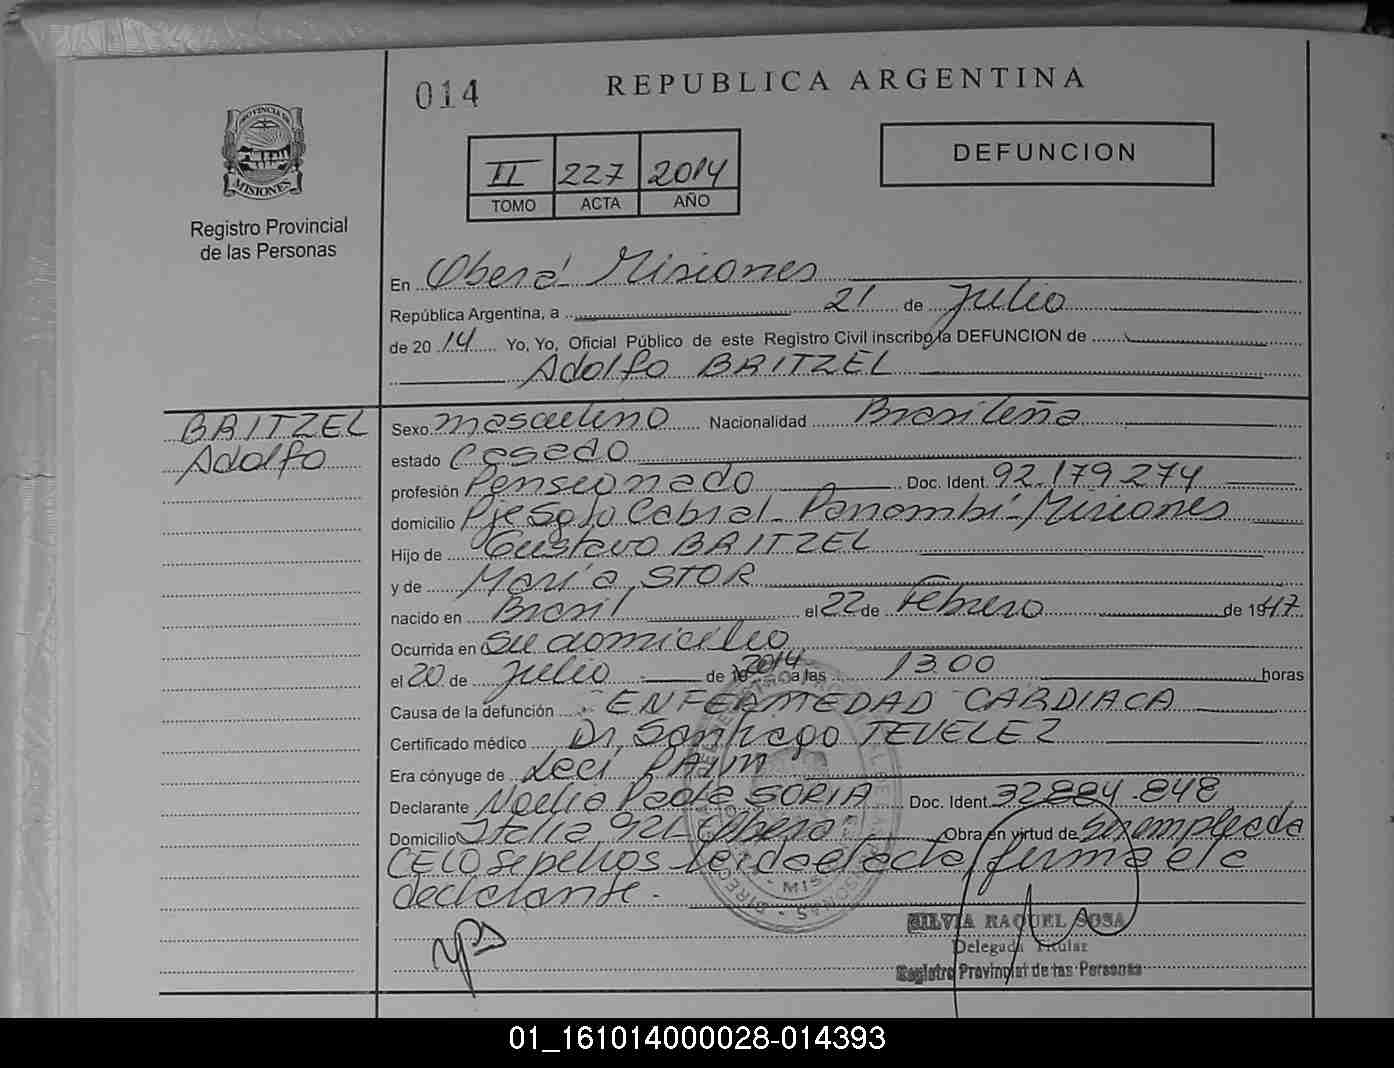 014
REPUBLICA ARGENTINA
PROVINCIA DE
MISIONES
Registro Provincial
de las Personas
II 227 2014
TOMO ACTA AÑO
DEFUNCION
En Oberá Misiones
República Argentina, a 21 de Julio
de 20 14 Yo, Yo, Oficial Público de este Registro Civil inscribo la DEFUNCION de
Adolfo BRITZEL
BRITZEL
Adolfo
Sexo masculino Nacionalidad Brasileña
estado Casado
profesión Pensionado Doc. Ident. 92.179.274
domicilio Pje Sgto Cabral - Panambí - Misiones
Hijo de Gustavo BRITZEL
y de María STOR
nacido en Brasil el 22 de Febrero de 19 47
Ocurrida en su domicilio
el 20 de Julio de 2014 a las 13.00 horas
Causa de la defunción ENFERMEDAD CARDIACA
Certificado médico Dr. Santiago TEVELEZ
Era cónyuge de Leci
Declarante Noelia Paola SORIA Doc. Ident. 32884.848
Domicilio Italia 921 Oberá Obra en virtud de ser empleada
CELO sepelios leida el acta firma el
declarante.
SILVIA RAQUEL SOSA
Delegada Titular
Registro Provincial de las Personas
01_161014000028-014393